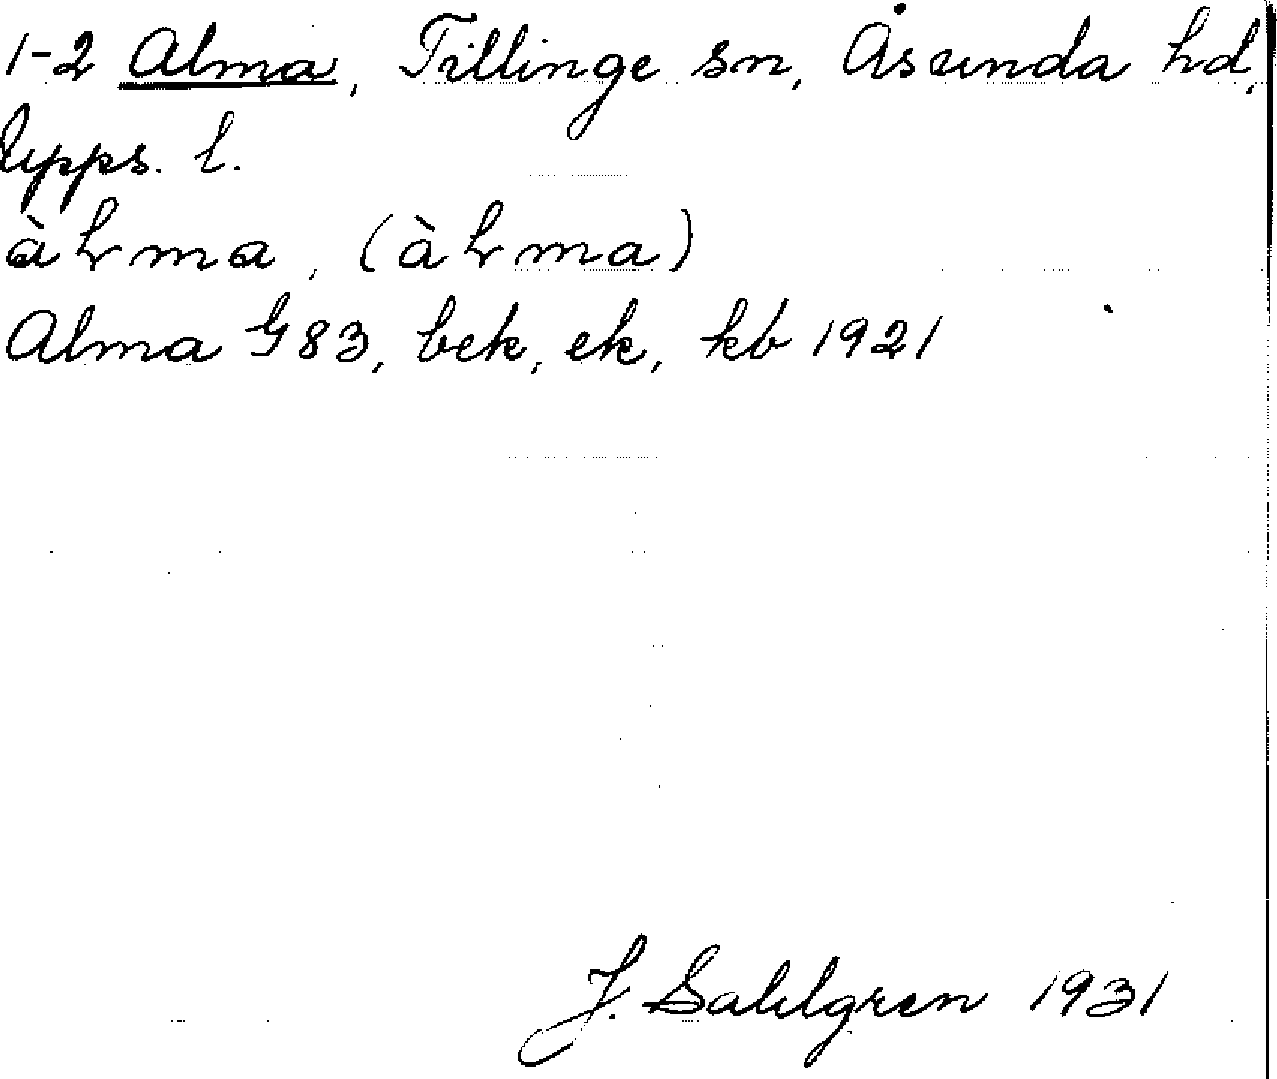 1-2 Alma, Tillinge sn, Åsunda hd,
Upps. l.
àɫma, (àɫma)
Alma G83, bek, ek, kb 1921
J. Sahlgren 1931